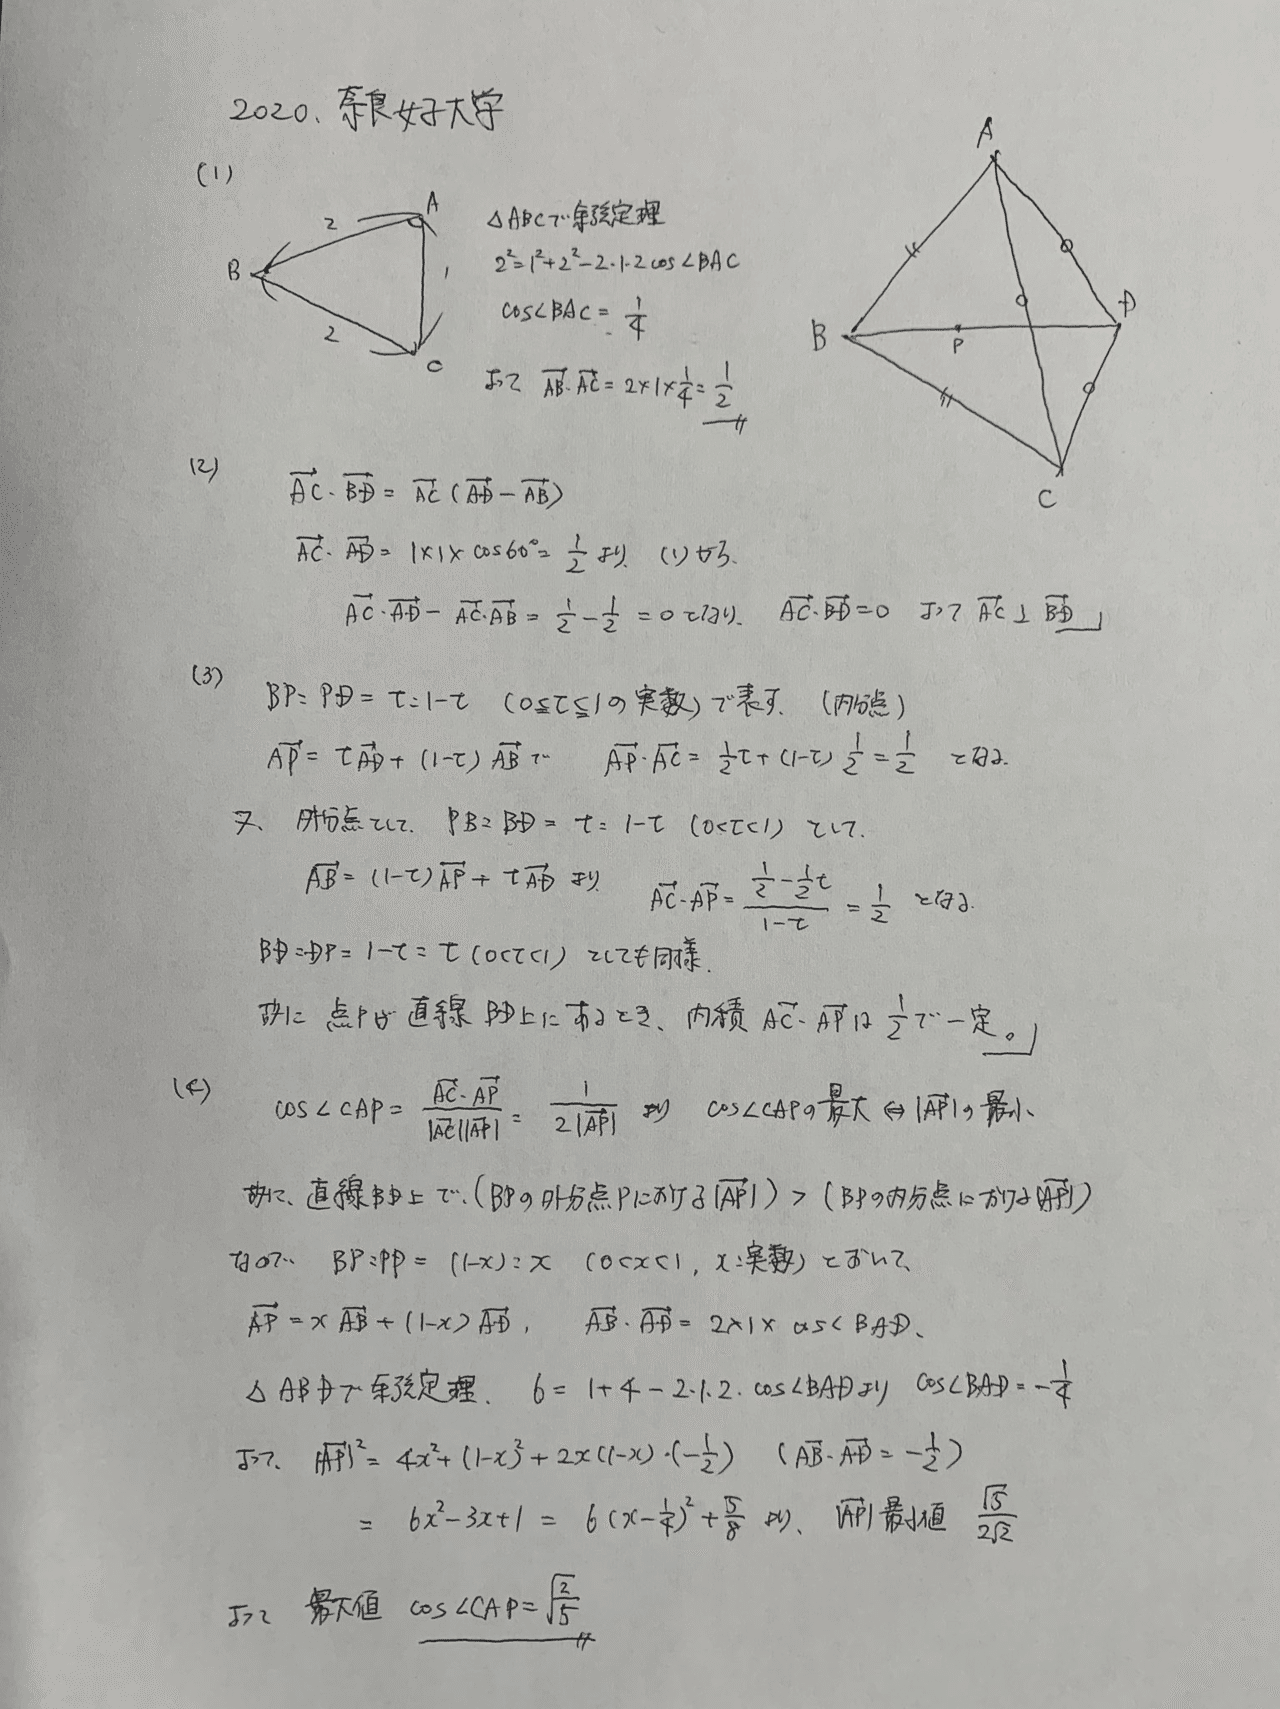 2020. 奈良女子大学
(1)
A
2
B
1
2
C
△ABCで余弦定理
2²=1²+2²-2・1・2cos∠BAC
cos∠BAC = 1/4
よって AB→・AC→ = 2×1×1/4 = 1/2
A
B
P
D
C
(2)
AC→・BD→ = AC→(AD→-AB→)
AC→・AD→ = 1×1×cos60° = 1/2 より (1)から.
AC→・AD→ - AC→・AB→ = 1/2 - 1/2 = 0 となり. AC→・BD→=0 よって AC→⊥BD→」
(3)
BP:PD = t:1-t (0≦t≦1の実数)で表す. (内分点)
AP→ = tAD→ + (1-t)AB→ で AP→・AC→ = 1/2t + (1-t)1/2 = 1/2 となる.
又、外分点として. PB:BD = t:1-t (0<t<1) として.
AB→ = (1-t)AP→ + tAD→ より AC→・AP→ = (1/2 - 1/2t)/(1-t) = 1/2 となる.
BD:DP = 1-t:t (0<t<1) としても同様.
故に 点Pが直線BD上にあるとき、内積 AC→・AP→は 1/2で一定。」
(4)
cos∠CAP = AC→・AP→/|AC→||AP→| = 1/2|AP→| より cos∠CAPの最大⇔|AP→|の最小、
故に、直線BD上で、(BPの外分点Pにおける|AP→|) > (BPの内分点における|AP→|)
なので BP:PD = (1-x):x (0<x<1, x:実数)とおいて、
AP→ = xAB→ + (1-x)AD→, AB→・AD→ = 2×1×cos∠BAD、
△ABDで余弦定理. 6 = 1+4-2・1・2・cos∠BADより cos∠BAD = -1/4
よって、|AP→|² = 4x²+(1-x)²+2x(1-x)・(-1/2) (AB→・AD→ = -1/2)
= 6x²-3x+1 = 6(x-1/4)²+5/8 より、|AP→|最小値 √5/2√2
よって 最大値 cos∠CAP = √(2/5)